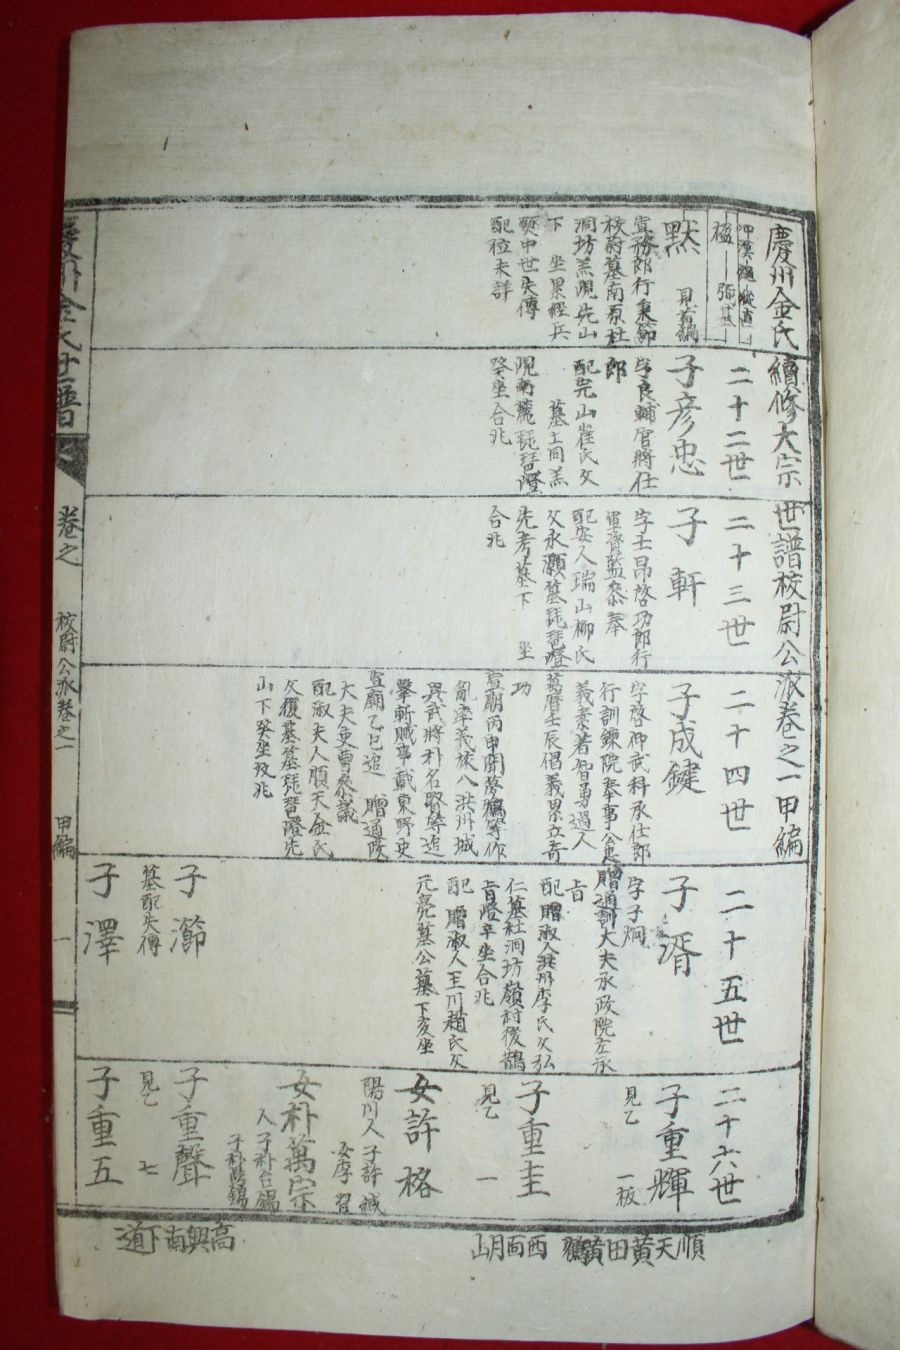 慶州金氏續修大宗世譜校尉公派卷之一甲編
沖漢
楹
弼基
默
見首編
宣務郎行秉節
校尉墓南原杜
洞坊羔峴先山
下 坐累經兵
燹中世失傳
配位未詳
二十二世
子彦忠
字良輔官將仕
郎
配完山崔氏父
墓上同羔
峴南麓琵琶嶝
癸坐合兆
二十三世
子軒
字士昂啓功郎行
軍資監參奉
配安人瑞山柳氏
父永灝墓琵琶嶝
先考墓下 坐
合兆
二十四世
子成鍵
字啓仲武科承仕郎
行訓鍊院奉事公忠
義素著智勇過人
萬曆壬辰倡義累立奇
功
宣廟丙申開夢鶴等作
亂率義旅入洪州城
與武將朴名賢等追
擊斬賊事載東野史
宣廟乙巳追 贈通政
大夫吏曹參議
配淑夫人順天金氏
父復基墓琵琶嶝先
山下癸坐攷兆
二十五世
子湑
字子烱
贈通訓大夫承政院左承
旨
配 贈淑人洪州李氏父弘
仁墓杜洞坊嶺村後鵲
旨嶝辛坐合兆
配 贈淑人玉川趙氏父
元亮墓公墓下亥坐
子瀄
墓配失傳
子澤
二十六世
子重輝
見乙 一板
子重圭
見乙 一
女許格
陽川人 子許鋮
女李 習
女朴萬宗
人 子朴台錫
子朴 錫
子重聲
見乙 七
子重五
順天黃田黃鶴 西面月山
高興南下道
慶州金氏世譜
卷之 校尉公派卷之一 甲編 一